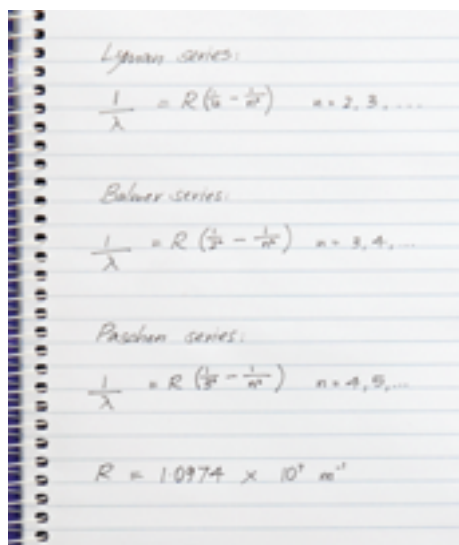 Lyman series:
1/λ = R(1/1² - 1/n²) n = 2, 3, ....
Balmer series:
1/λ = R (1/2² - 1/n²) n = 3, 4, ...
Paschen series:
1/λ = R (1/3² - 1/n²) n = 4, 5, ...
R = 1.0974 × 10⁷ m⁻¹